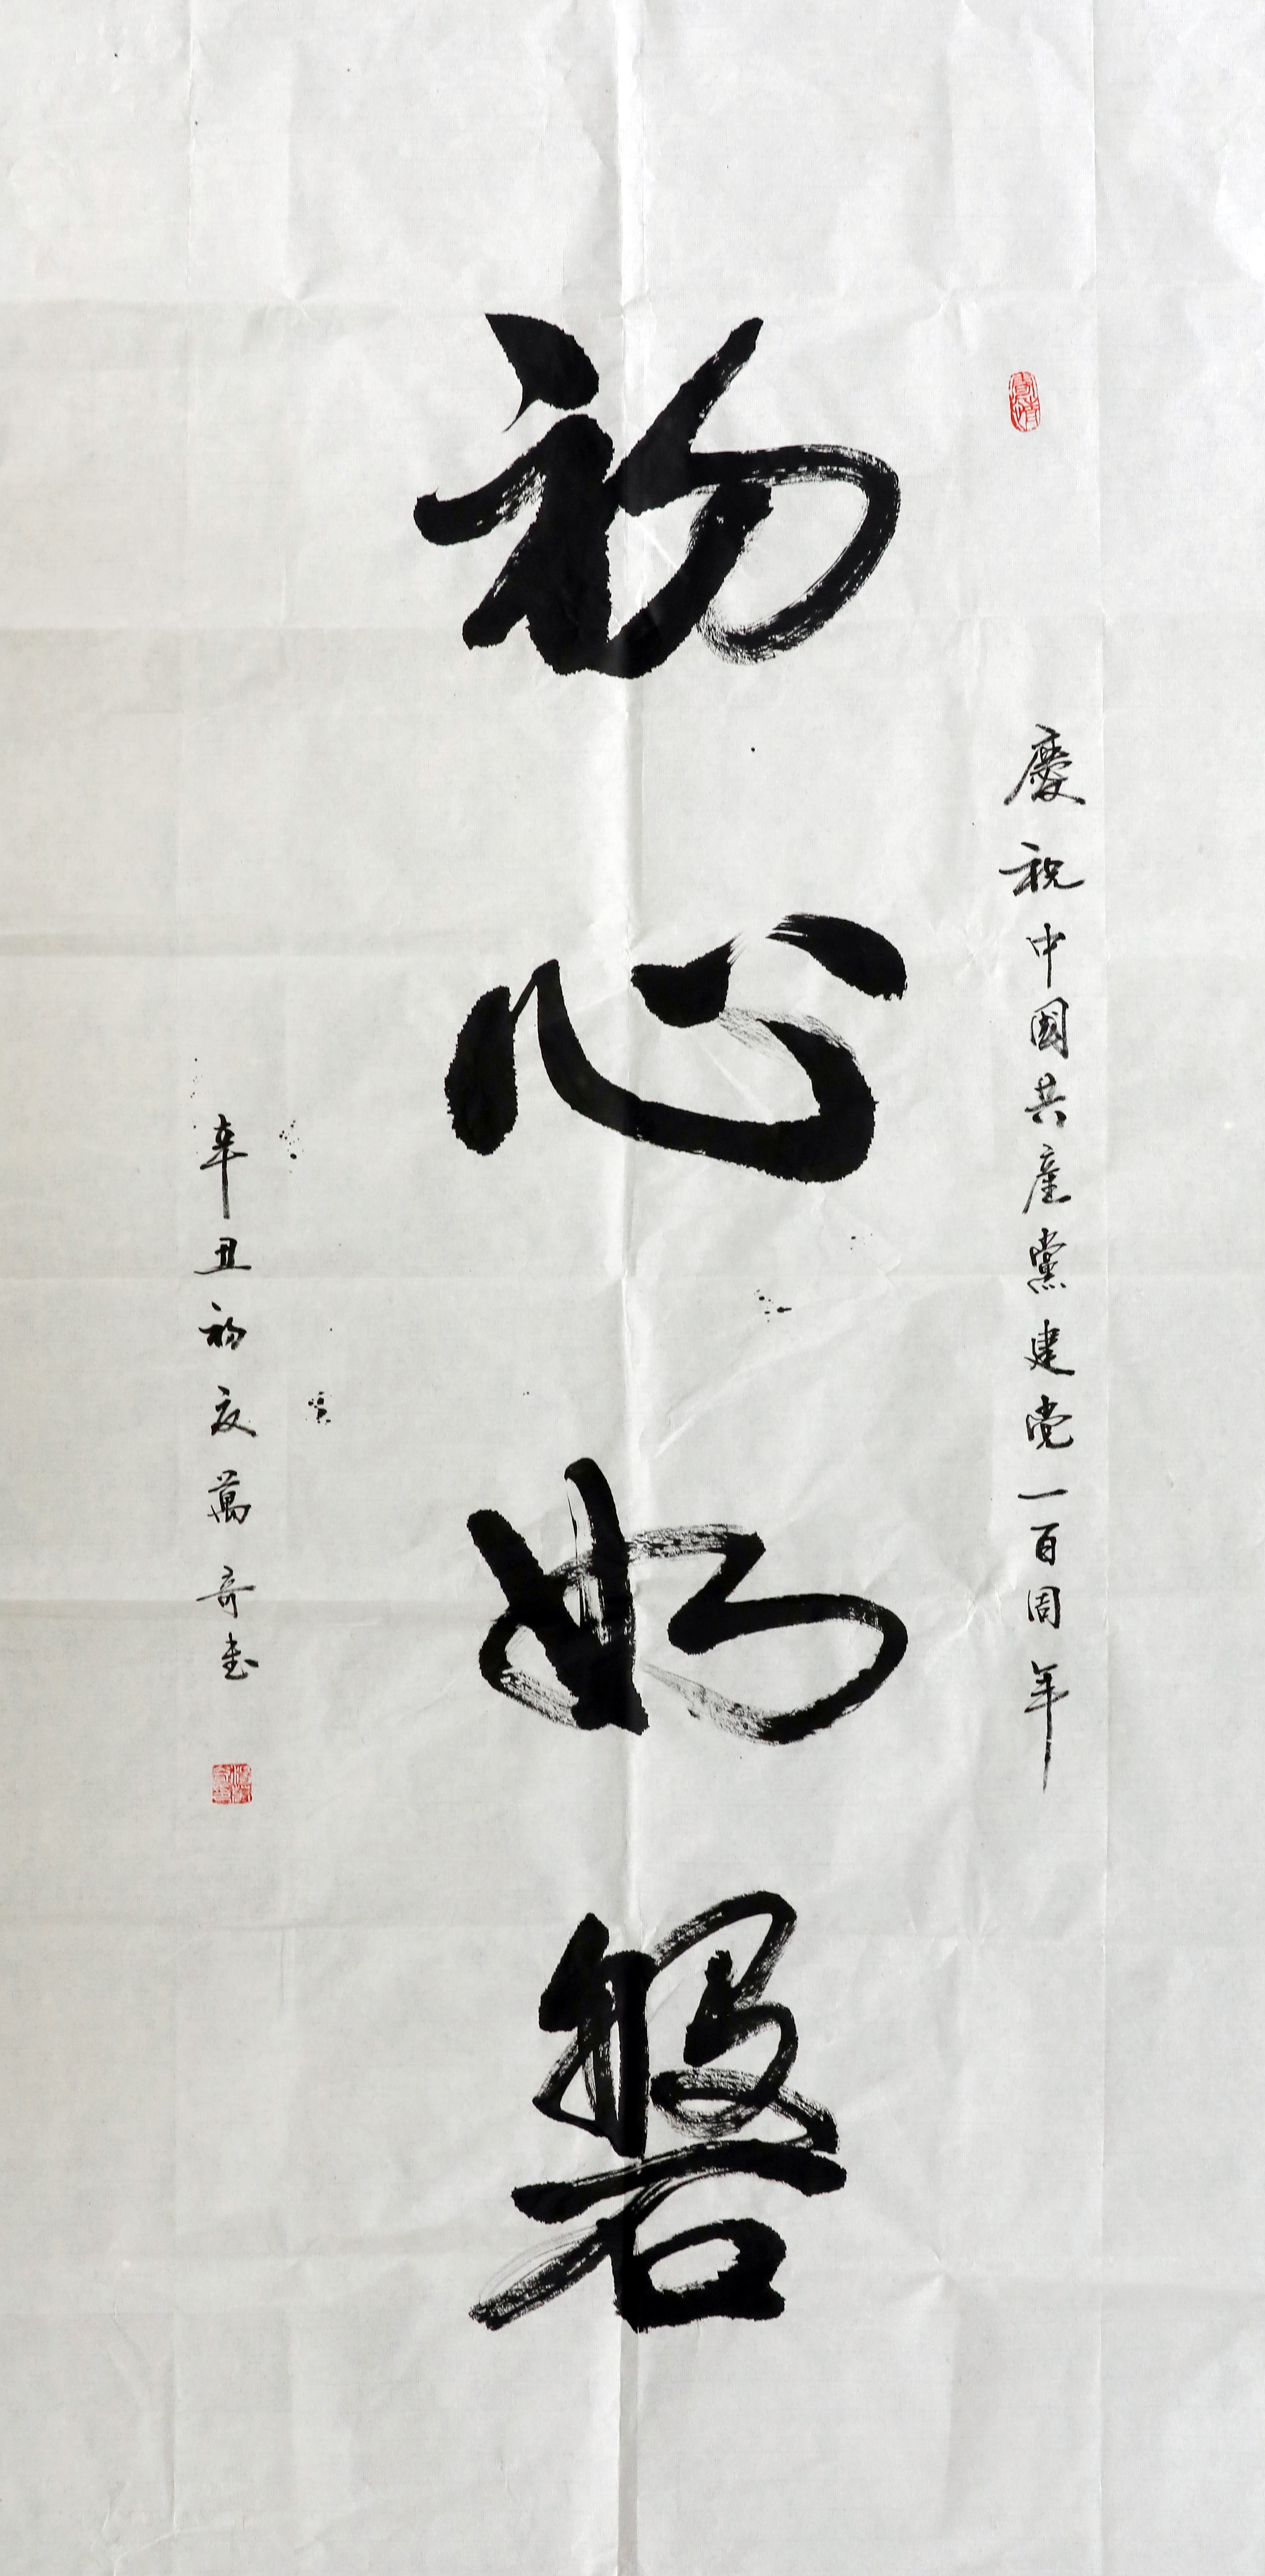 慶祝中國共產黨建党一百周年
初心如磐
辛丑初夏萬奇书